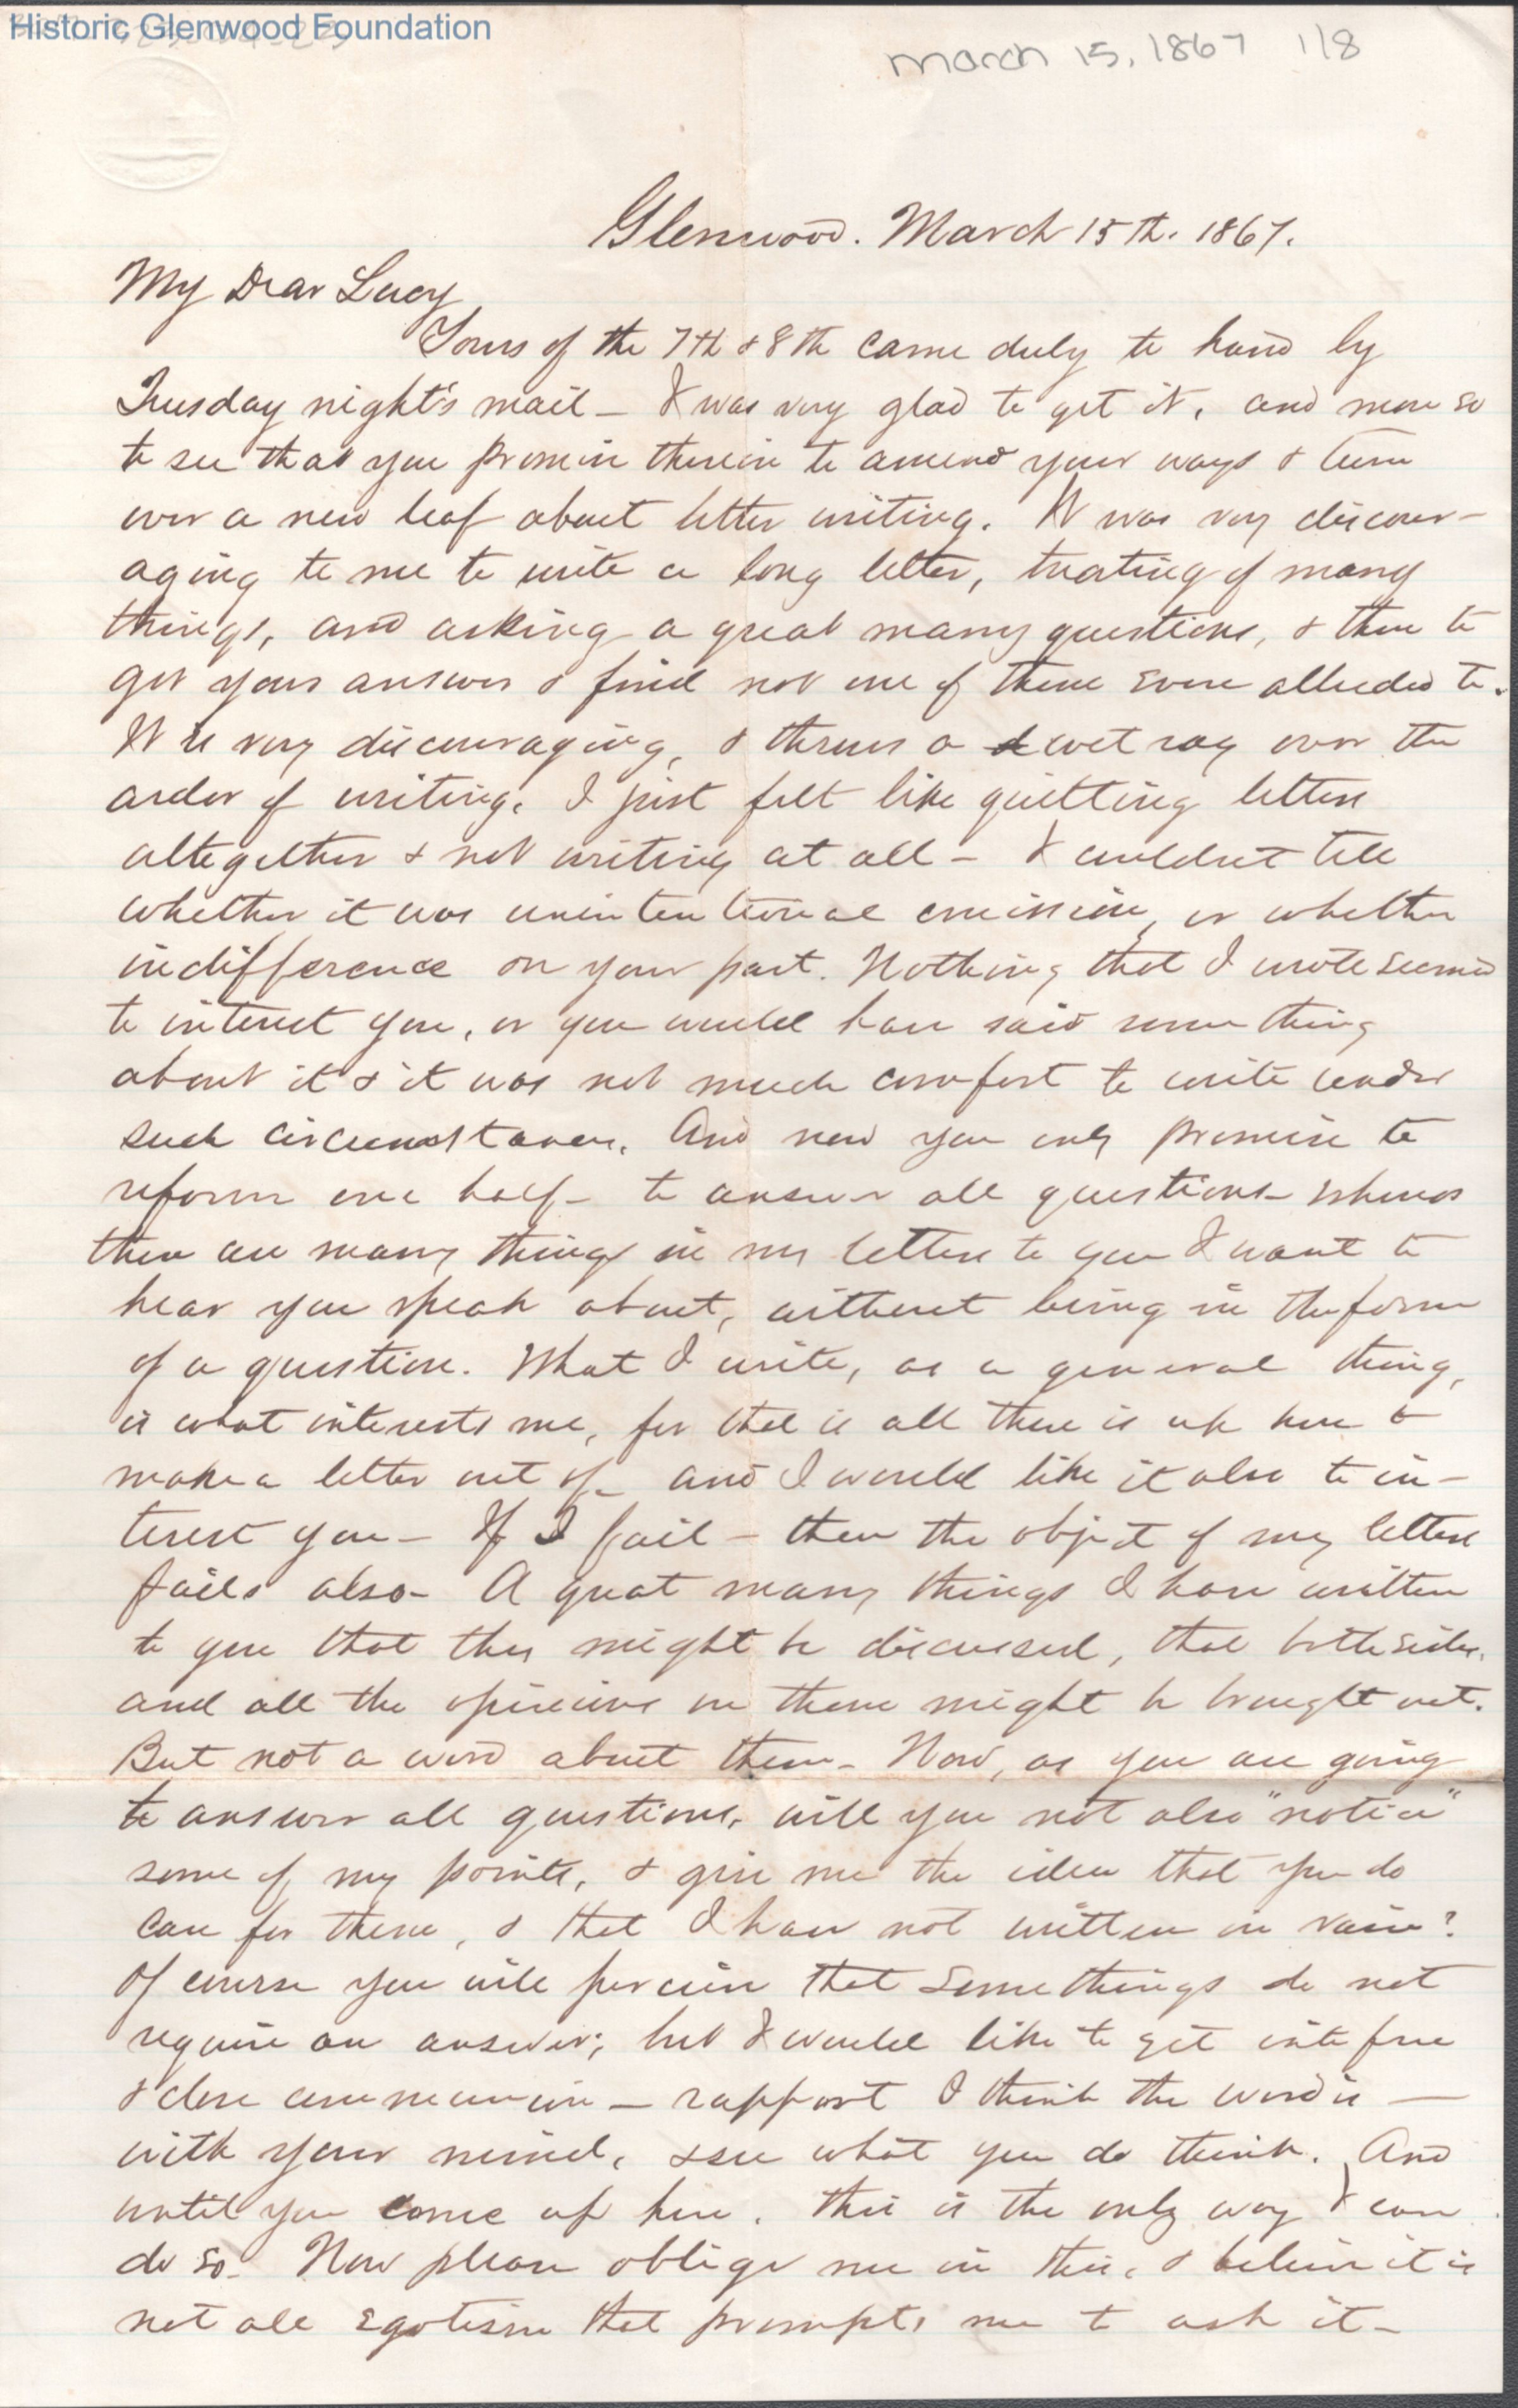 Historic Glenwood Foundation
March 15, 1867 118
Glenwood. March 15th. 1867.
My Dear Lucy
Yours of the 7th & 8th came duly to hand by
Tuesday night's mail - I was very glad to get it, and more so
to see that you promise therein to amend your ways & turn
over a new leaf about letter writing. It was very discour-
aging to me to write a long letter, treating of many
things, and asking a great many questions, & then to
get your answer & find not one of them even alluded to.
It is very discouraging, & throws a wet rag over the
ardor of writing. I just felt like quitting letters
altogether & not writing at all - I couldn't tell
whether it was unintentional omission, or whether
indifference on your part. Nothing that I wrote seemed
to interest you, or you would have said something
about it & it was not much comfort to write under
such circumstances. And now you only promise to
reform one half - to answer all questions - whereas
there are many things in my letters to you I want to
hear you speak about, without being in the form
of a question. What I write, as a general thing,
is what interests me, for that is all there is up here to
make a letter out of - and I would like it also to in-
terest you - If I fail - then the object of my letters
fails also - A great many things I have written
to you that they might be discussed, that both sides,
and all the opinions on them might be brought out.
But not a word about them - Now, as you are going
to answer all questions, will you not also "notice"
some of my points, & give me the idea that you do
care for them, & that I have not written in vain?
Of course you will perceive that some things do not
require an answer; but I would like to get into free
& close communion - rapport I think the word is -
with your mind, & see what you do think. And
until you come up here, this is the only way I can
do so. Now please oblige me in this, & believe it is
not all egotism that prompts me to ask it -